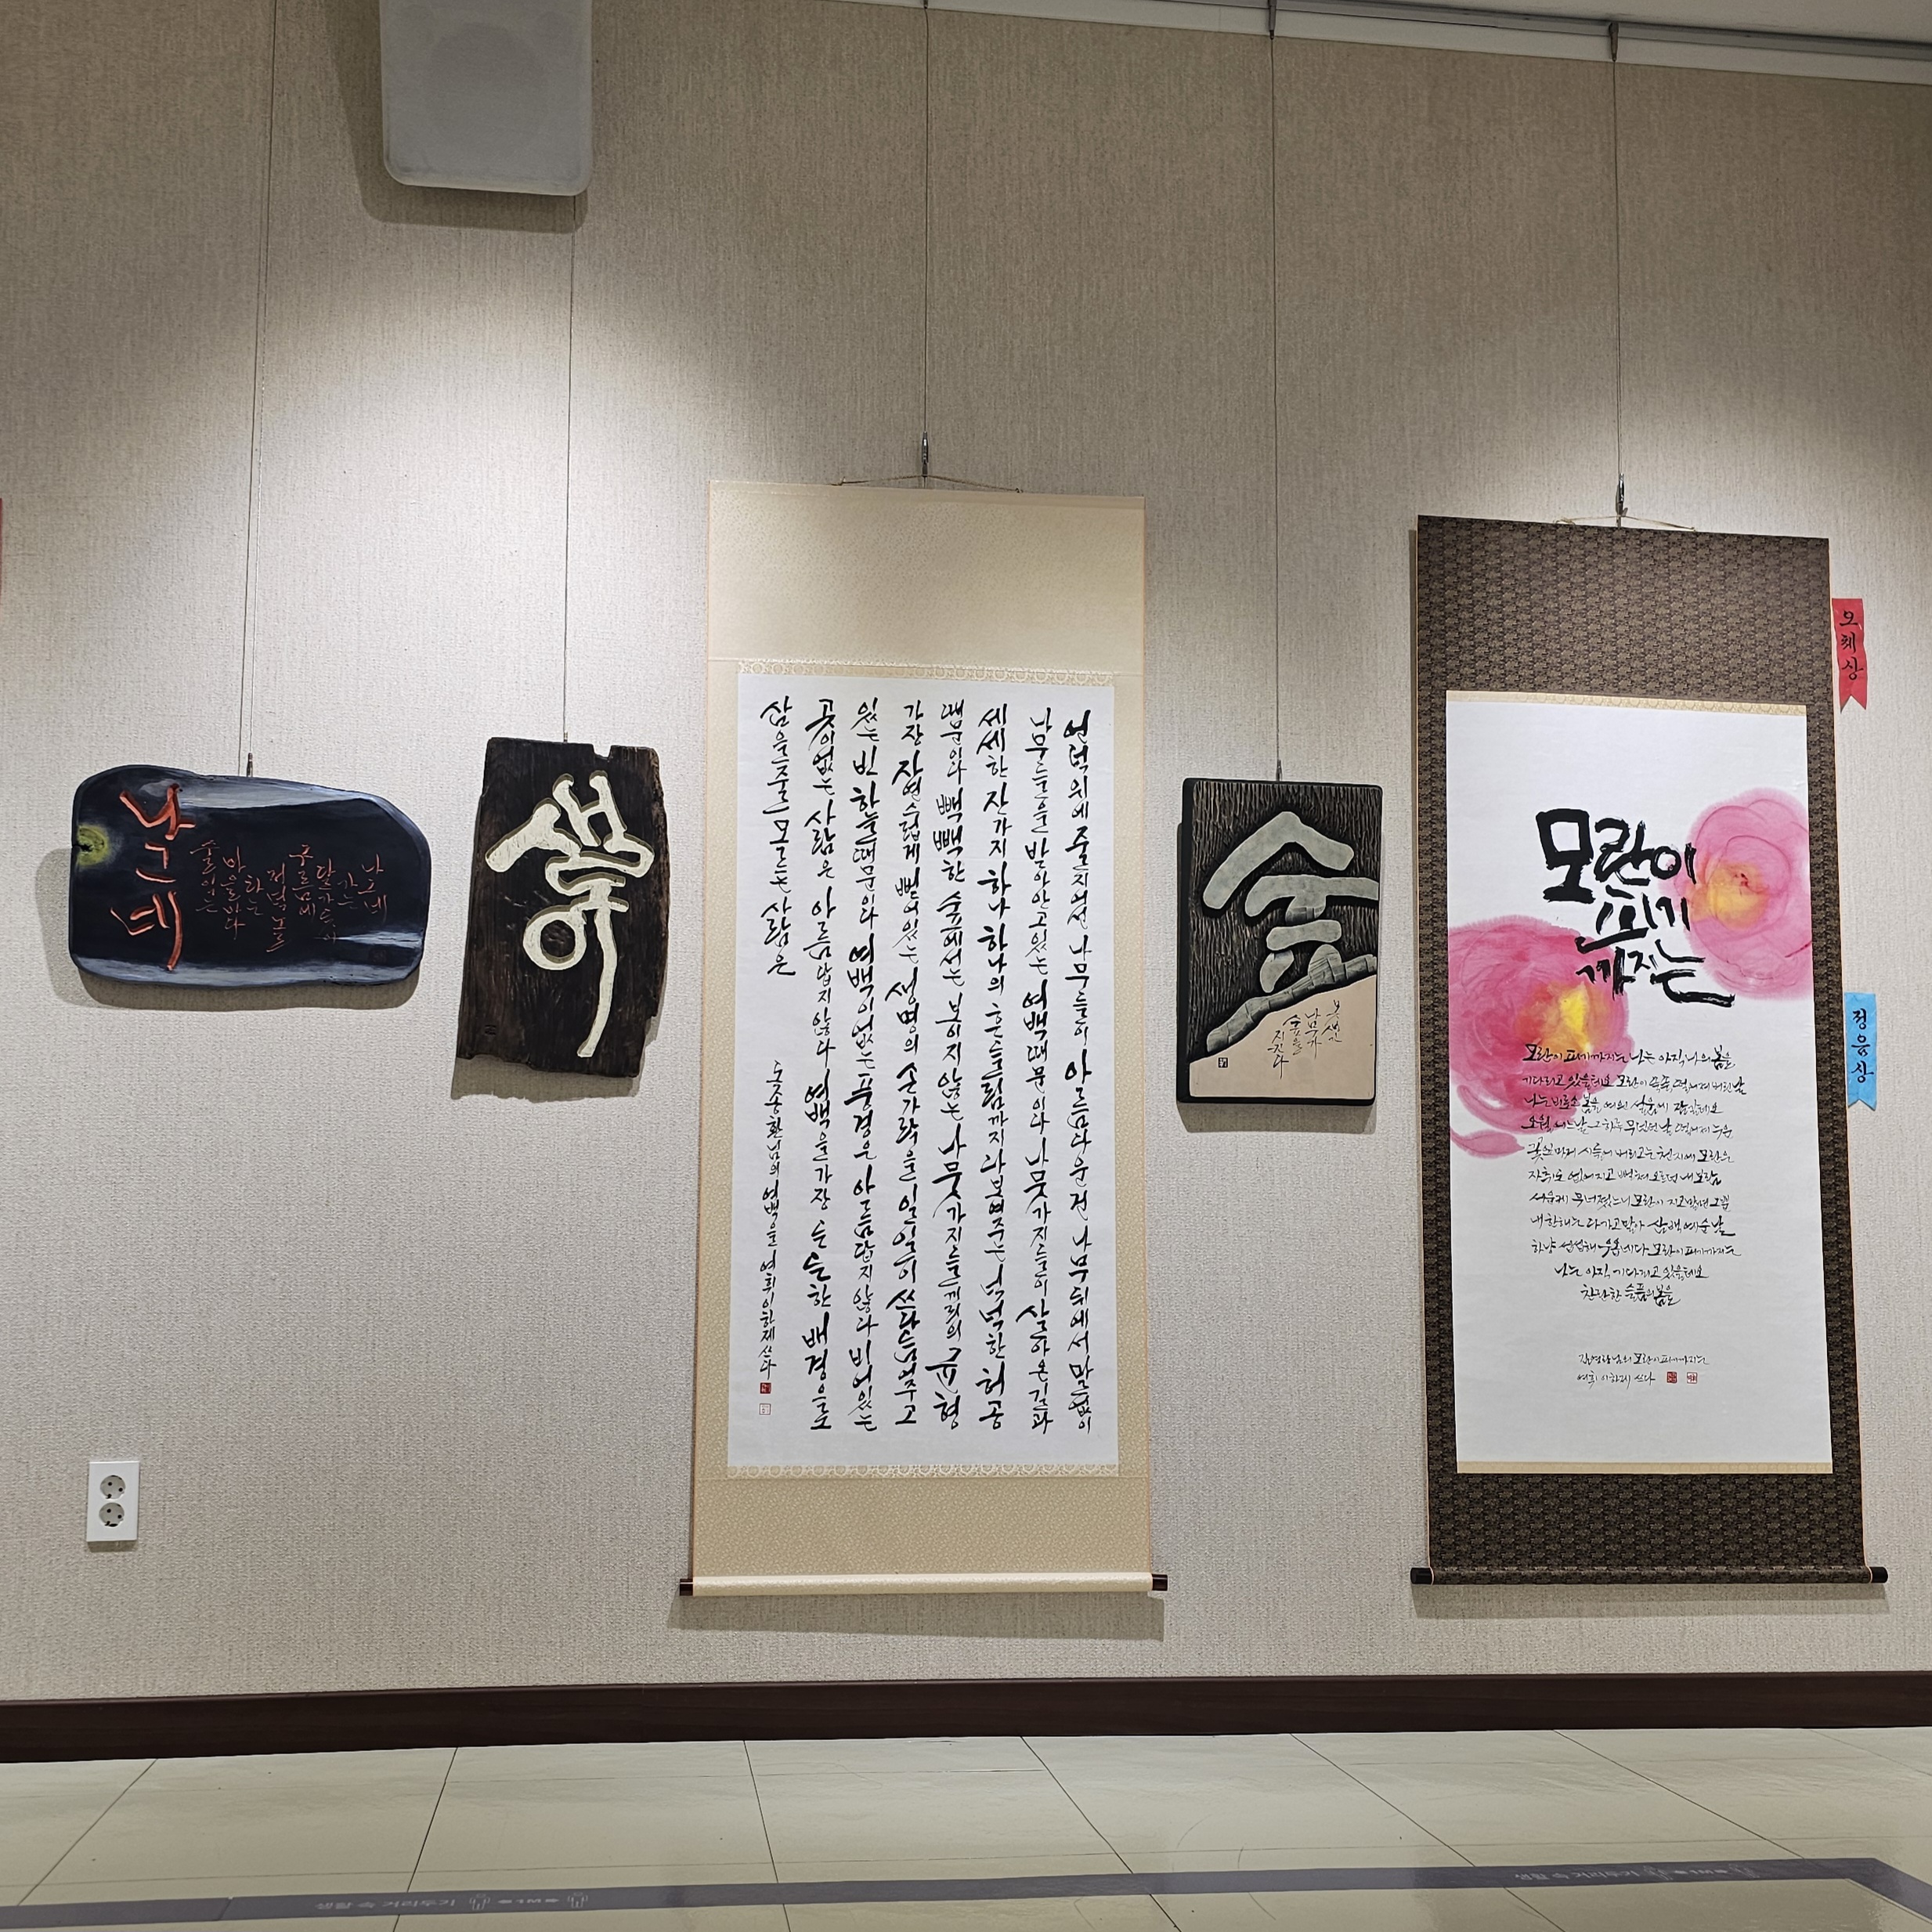 나그네
술익는
마을마다
타는
저녁 노을
구름에
달가듯이
가는
나그네
언덕위에 줄지어선 나무들이 아름다운건 나무뒤에서 말없이
나무들을 받아안고있는 여백때문이다 나뭇가지들이 살아온길과
세세한 잔가지 하나하나의 흔들림까지 다보여주는 넉넉한 허공
때문이다 빽빽한 숲에서는 보이지않는 나뭇가지들끼리의 균형
가장 자연스럽게 뻗어있는 생명의 손가락을 일일이 쓰다듬어주고
있는 빈하늘때문이다 여백이없는 풍경은 아름답지않다 비어있는
곳이없는 사람은 아름답지않다 여백을가장 든든한 배경으로
삼을줄모르는 사람은
도종환님의 여백을 여휘이한제 쓰다
숲
못생긴
나무가
숲을
지킨다
모란이
피기
까지는
모란이 피기까지는 나는 아직 나의 봄을
기다리고 있을테요 모란이 뚝뚝 떨어져 버린날
나는 비로소 봄을 여읜 설움에 잠길테요
오월 어느날 그하루 무덥던 날 떨어져 누운
꽃잎마저 시들어 버리고는 천지에 모란은
자취도 없어지고 뻗쳐오르던 내보람
서운케 무너졌느니 모란이 지고말면 그뿐
내 한해는 다가고말아 삼백예순날
하냥 섭섭해 우옵네다 모란이 피기까지는
나는 아직 기다리고 있을테요
찬란한 슬픔의봄을
김영랑님의 모란이피기까지는
여휘 이한제 쓰다
오체상
정음상
생활 속 거리두기 1M
생활 속 거리두기 1M